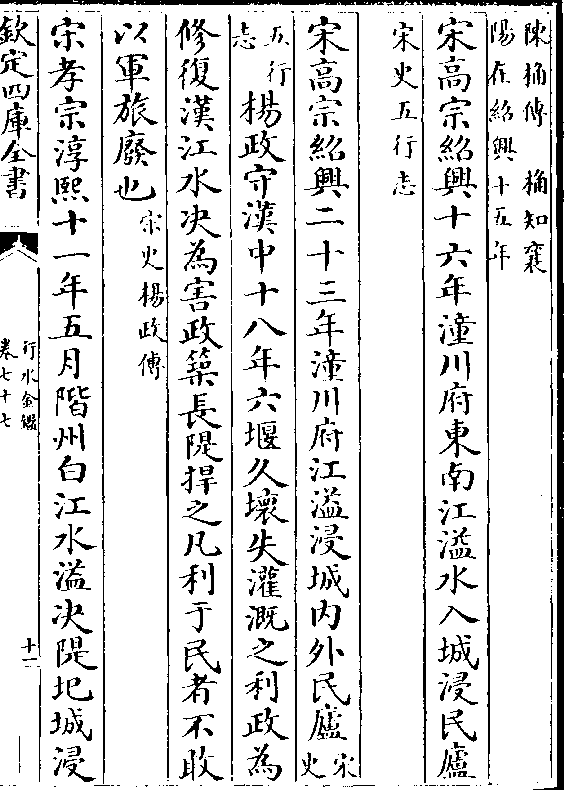 陳桷傳　桷知襄
陽在紹興十五年
宋高宗紹興十六年潼川府東南江溢水入城浸民廬
宋史五行志
宋高宗紹興二十三年潼川府江溢浸城内外民廬宋史
五行志楊政守漢中十八年六堰久壞失灌溉之利政為
修復漢江水决為害政築長隄捍之凡利于民者不敢
以軍旅廢也宋史楊政傳
宋孝宗淳熙十一年五月階州白江水溢决隄圮城浸
欽定四庫全書
行水金鑑
卷七十七
十一